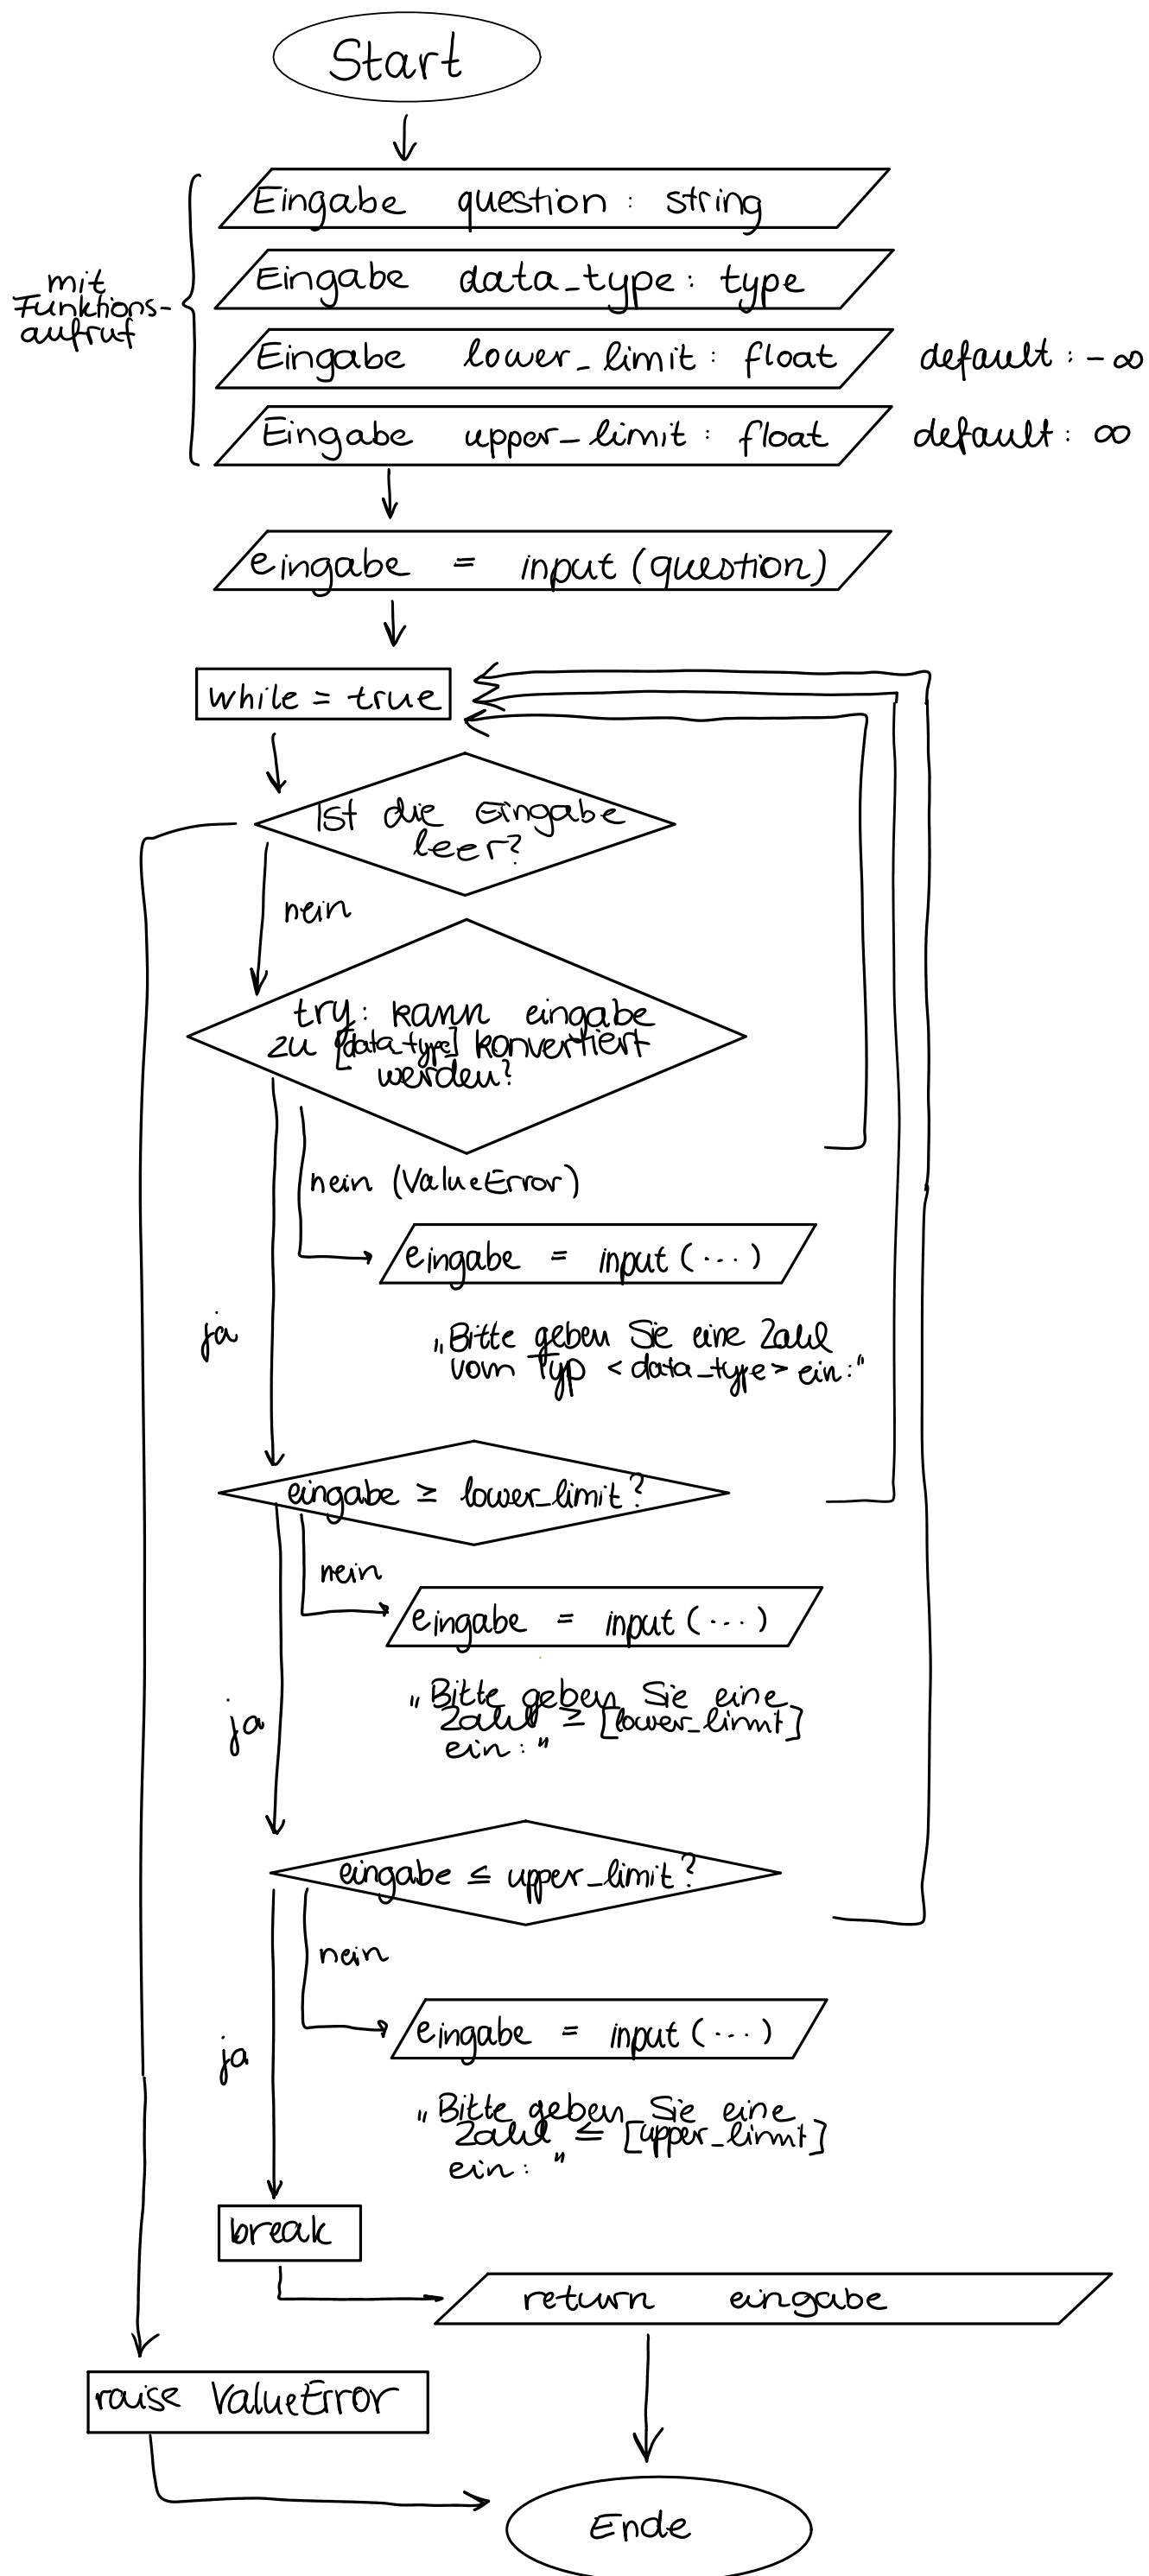 Start
Eingabe question : string
Eingabe data_type : type
mit
Funktions-
aufruf
Eingabe lower_limit : float default : - ∞
Eingabe upper_limit : float default : ∞
eingabe = input (question)
while = true
Ist die Eingabe
leer?
nein
try: kann eingabe
zu [data_type] konvertiert
werden?
nein (ValueError)
eingabe = input (...)
ja
„Bitte geben Sie eine Zahl
vom Typ < data_type > ein:"
eingabe ≥ lower_limit?
nein
eingabe = input (...)
„Bitte geben Sie eine
Zahl ≥ [lower_limit]
ein:"
ja
eingabe ≤ upper_limit?
nein
eingabe = input (...)
ja
„Bitte geben Sie eine
Zahl ≤ [upper_limit]
ein: "
break
return eingabe
raise ValueError
Ende